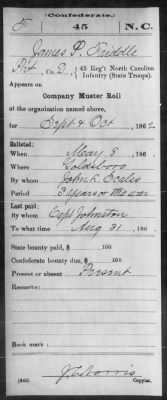 (Confederate.)
T 45 N.C.
James P. Triddle
Pvt, Co. D, 45 Reg't North Carolina
Infantry (State Troops).
Appears on
Company Muster Roll
of the organization named above,
for Sept & Oct, 1862.
Enlisted:
When May 8, 186
Where Goldsboro
By whom John K. Scales
Period 3 years or the war
Last paid:
By whom Capt Johnston
To what time Aug 31, 186
State bounty paid, $ 100
Confederate bounty due, $ 100
Present or absent Present
Remarks:
Book mark:
(642) Copyist.